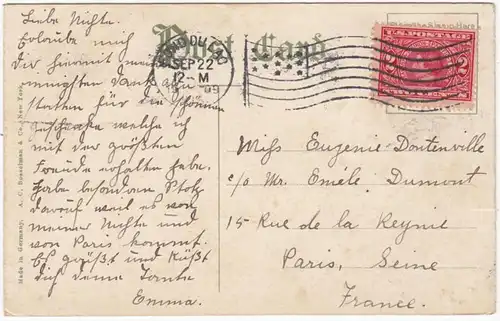 Liebe Nichte.
Erlaube mich
Dir hiermit meinen
innigsten Dank abzu-
statten für die schönen
Geschenke welche ich
mit der größten
Freude erhalten habe.
Habe besondern Stolz
darauf weil es von
meiner Nichte und
von Paris kommt.
Es grüßt und küßt
dich deine Tante
Emma.
Post Card
SEP 22
12-M
U.S. POSTAGE
2 2
Miss Eugenie Dontenville
c/o Mr. Eméle Dumont
15 Rue de la Reynie
Paris, Seine
France.
Made in Germany. A. C. Bosselman & Co., New York.